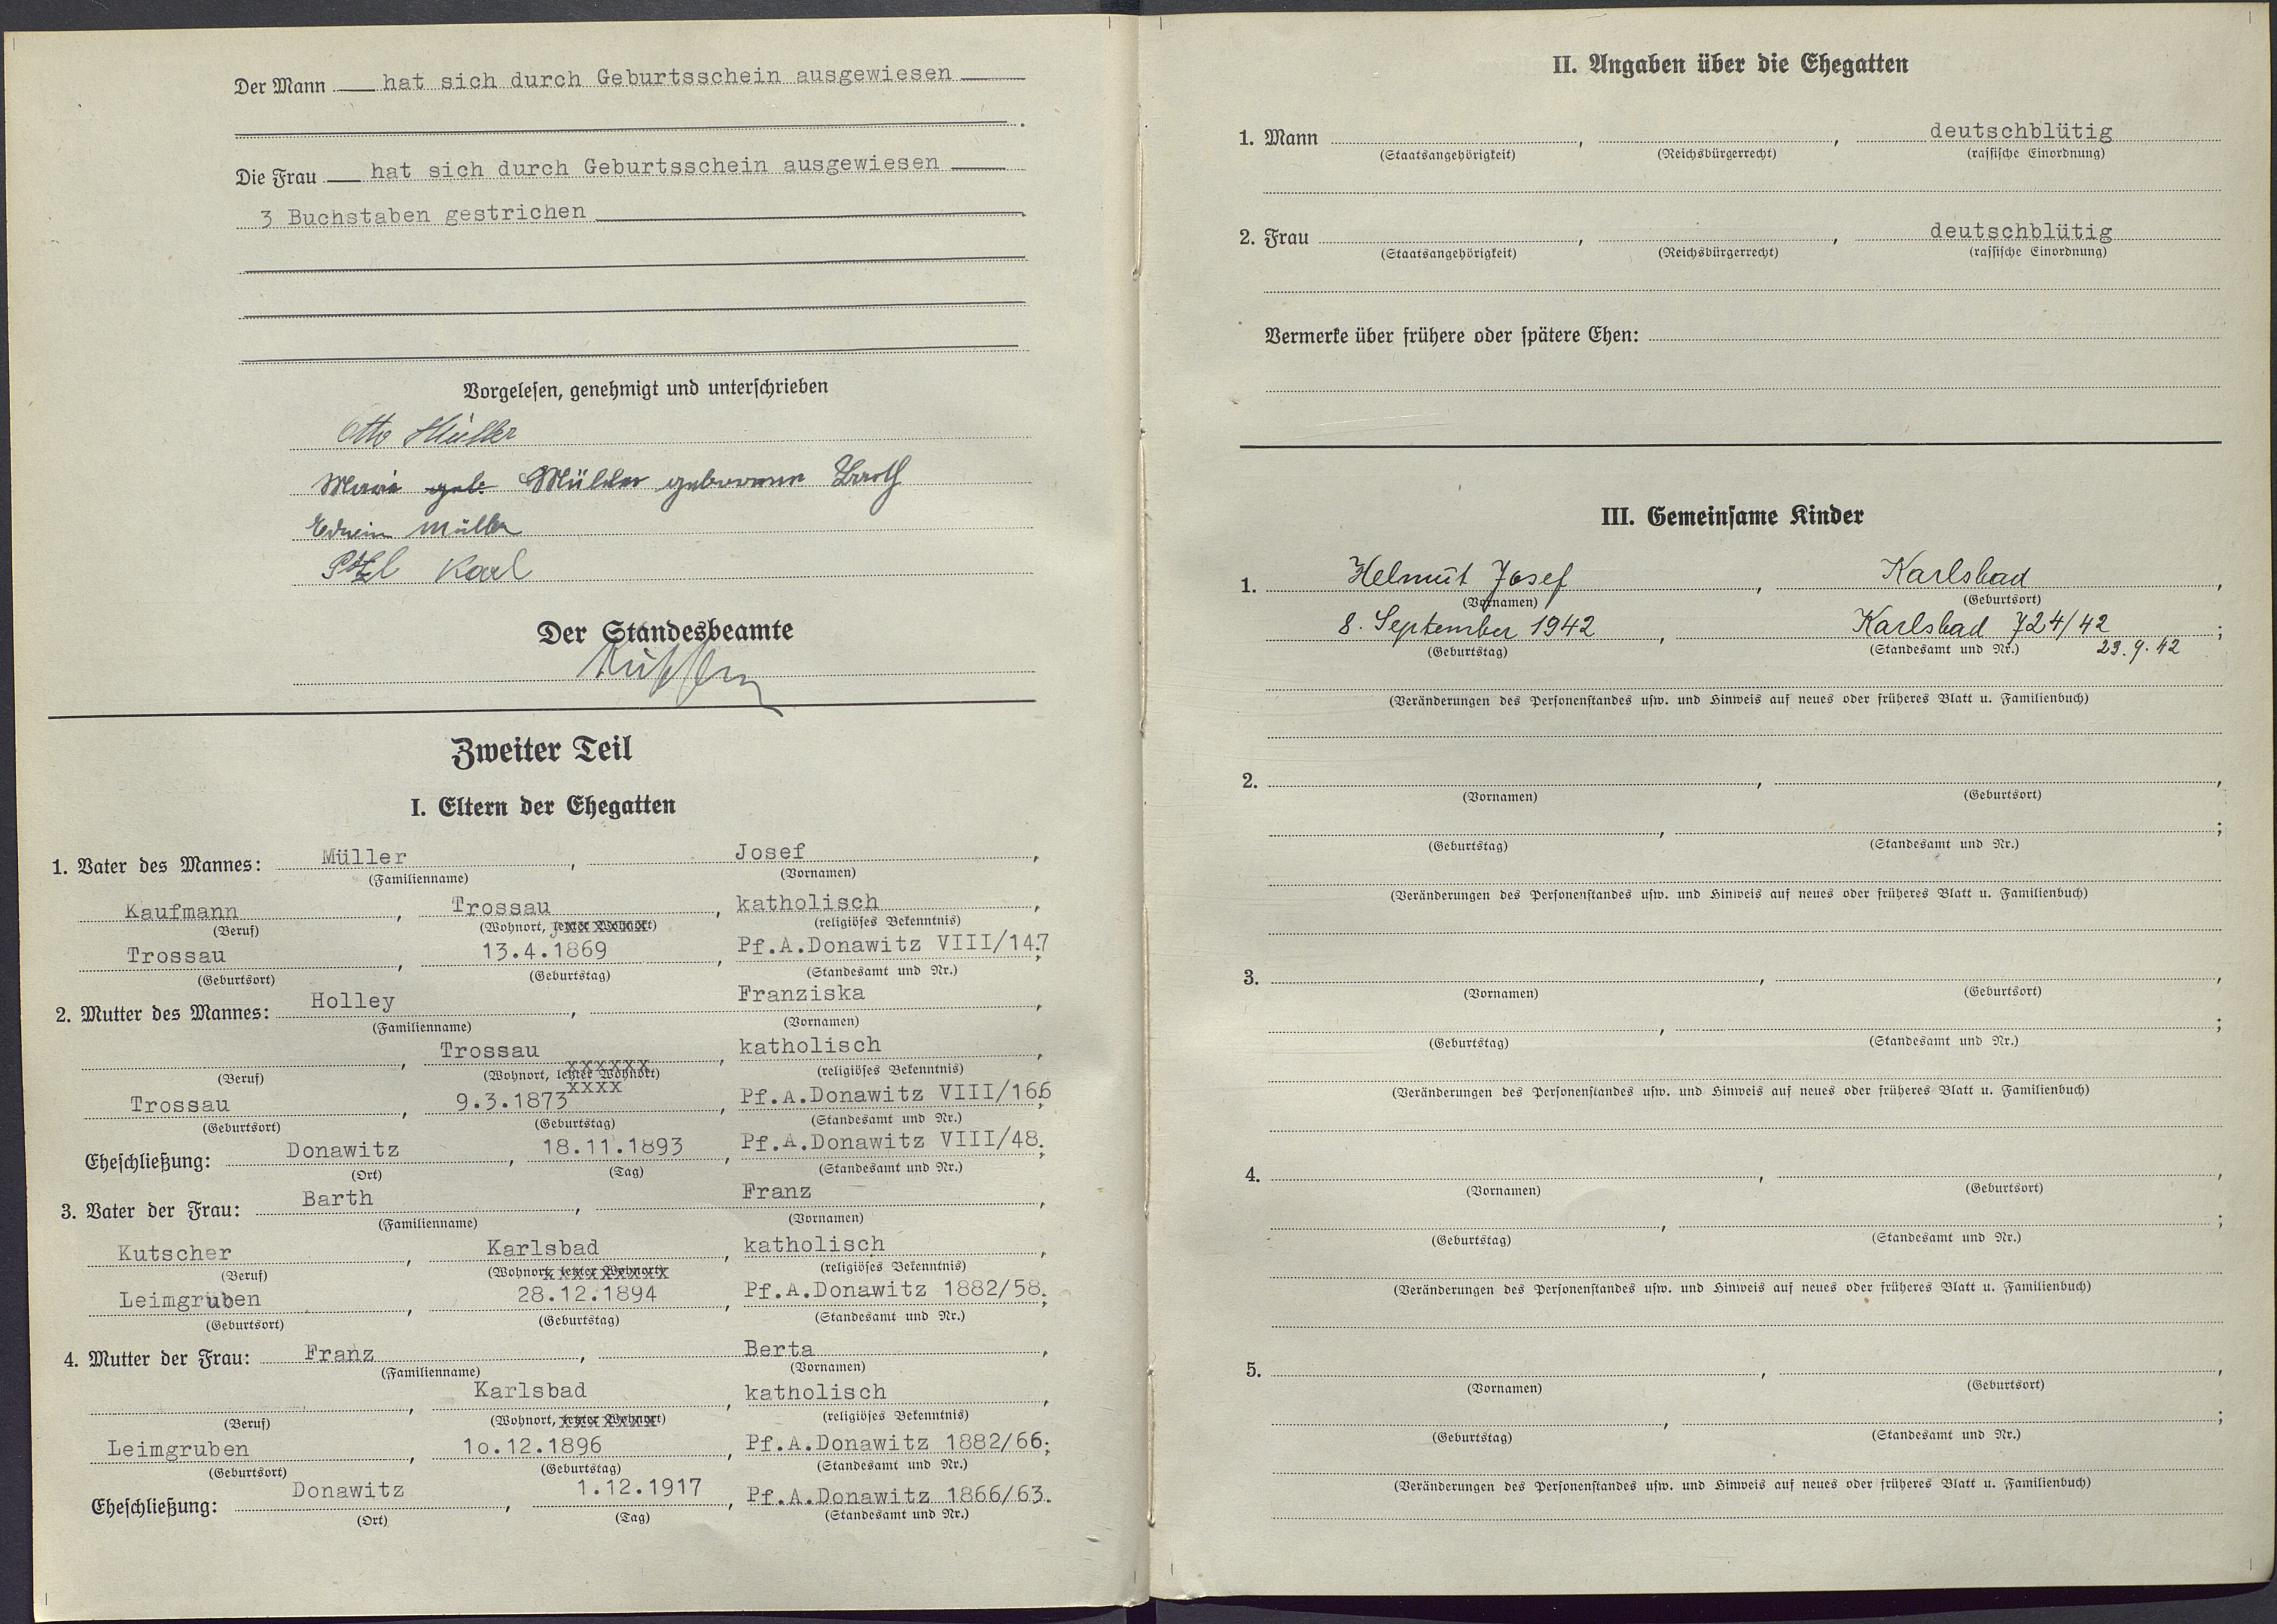 Der Mann hat sich durch Geburtsschein ausgewiesen
Die Frau hat sich durch Geburtsschein ausgewiesen
3 Buchstaben gestrichen
Vorgelesen, genehmigt und unterschrieben
Otto Müller
Marie geb. Müller geborene Barth
Erwin Müller
Karl
Der Standesbeamte
Zweiter Teil
I. Eltern der Ehegatten
1. Vater des Mannes: Müller, Josef,
(Familienname) (Vornamen)
Kaufmann, Trossau, katholisch,
(Beruf) (Wohnort, letzter Wohnort) (religiöses Bekenntnis)
Trossau, 13.4.1869, Pf.A.Donawitz VIII/147;
(Geburtsort) (Geburtstag) (Standesamt und Nr.)
2. Mutter des Mannes: Holley, Franziska,
(Familienname) (Vornamen)
, Trossau, katholisch,
(Beruf) (Wohnort, letzter Wohnort) (religiöses Bekenntnis)
Trossau, 9.3.1873, Pf.A.Donawitz VIII/166;
(Geburtsort) (Geburtstag) (Standesamt und Nr.)
Eheschließung: Donawitz, 18.11.1893, Pf.A.Donawitz VIII/48.;
(Ort) (Tag) (Standesamt und Nr.)
3. Vater der Frau: Barth, Franz,
(Familienname) (Vornamen)
Kutscher, Karlsbad, katholisch,
(Beruf) (Wohnort, letzter Wohnort) (religiöses Bekenntnis)
Leimgruben, 28.12.1894, Pf.A.Donawitz 1882/58.;
(Geburtsort) (Geburtstag) (Standesamt und Nr.)
4. Mutter der Frau: Franz, Berta,
(Familienname) (Vornamen)
, Karlsbad, katholisch,
(Beruf) (Wohnort, letzter Wohnort) (religiöses Bekenntnis)
Leimgruben, 1o.12.1896, Pf.A.Donawitz 1882/66;
(Geburtsort) (Geburtstag) (Standesamt und Nr.)
Eheschließung: Donawitz, 1.12.1917, Pf.A.Donawitz 1866/63.
(Ort) (Tag) (Standesamt und Nr.)
II. Angaben über die Ehegatten
1. Mann , , deutschblütig
(Staatsangehörigkeit) (Reichsbürgerrecht) (rassische Einordnung)
2. Frau , , deutschblütig
(Staatsangehörigkeit) (Reichsbürgerrecht) (rassische Einordnung)
Vermerke über frühere oder spätere Ehen:
III. Gemeinsame Kinder
1. Helmut Josef, Karlsbad,
(Vornamen) (Geburtsort)
8. September 1942, Karlsbad 724/42;
(Geburtstag) (Standesamt und Nr.) 23.9.42
(Veränderungen des Personenstandes usw. und Hinweis auf neues oder früheres Blatt u. Familienbuch)
2. , ,
(Vornamen) (Geburtsort)
, ;
(Geburtstag) (Standesamt und Nr.)
(Veränderungen des Personenstandes usw. und Hinweis auf neues oder früheres Blatt u. Familienbuch)
3. , ,
(Vornamen) (Geburtsort)
, ;
(Geburtstag) (Standesamt und Nr.)
(Veränderungen des Personenstandes usw. und Hinweis auf neues oder früheres Blatt u. Familienbuch)
4. , ,
(Vornamen) (Geburtsort)
, ;
(Geburtstag) (Standesamt und Nr.)
(Veränderungen des Personenstandes usw. und Hinweis auf neues oder früheres Blatt u. Familienbuch)
5. , ,
(Vornamen) (Geburtsort)
, ;
(Geburtstag) (Standesamt und Nr.)
(Veränderungen des Personenstandes usw. und Hinweis auf neues oder früheres Blatt u. Familienbuch)